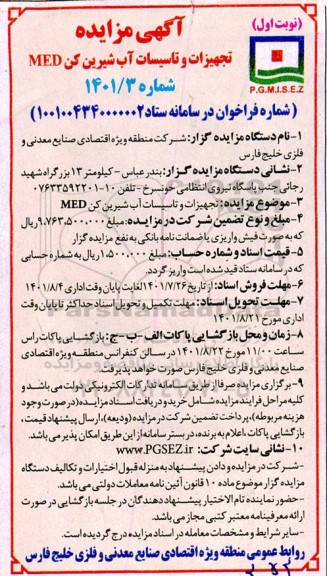 (نوبت اول)
آگهی مزایده
تجهیزات و تاسیسات آب شیرین کن MED
شماره ۱۴۰۱/۳
P.G.M.I.S.EZ
(شماره فراخوان در سامانه ستاد ۱۰۰۱۰۰۴۳۴۰۰۰۰۰۲)
۱-نام دستگاه مزایده گزار: شرکت منطقه ویژه اقتصادی صنایع معدنی و
فلزی خلیج فارس
۲-نشانی دستگاه مزایده گزار: بندرعباس - کیلومتر ۱۳ بزرگراه شهید
رجائی جنب پاسگاه نیروی انتظامی خونسرخ - تلفن ۱۰-۰۷۶۳۳۵۹۲۲۰۱
۳-موضوع مزایده: تجهیزات و تاسیسات آب شیرین کن MED
۴-مبلغ و نوع تضمین شرکت در مزایده: مبلغ ۹،۷۶۳،۵۰۰،۰۰۰ ریال
که به صورت فیش واریزی یا ضمانت نامه بانکی به نفع مزایده گزار
۵-قیمت اسناد و شماره حساب: مبلغ ۱،۵۰۰،۰۰۰ ریال به شماره حسابی
که در سامانه ستاد قید شده است واریز گردد.
۶-مهلت فروش اسناد: از تاریخ ۱۴۰۱/۷/۲۶ لغایت پایان وقت اداری ۱۴۰۱/۸/۴
۷-مهلت تحویل اسناد: مهلت تکمیل و تحویل اسناد حداکثر تا پایان وقت
اداری مورخ ۱۴۰۱/۸/۲۱
۸-زمان و محل بازگشایی پاکات الف - ب - ج: بازگشایی پاکات راس
ساعت ۱۱/۰۰ مورخ ۱۴۰۱/۸/۲۲ در سالن کنفرانس منطقه ویژه اقتصادی
صنایع معدنی و فلزی خلیج فارس صورت خواهد پذیرفت.
۹-برگزاری مزایده صرفا از طریق سامانه تدارکات الکترونیکی دولت می باشد و
کلیه مراحل فرآیند مزایده شامل خرید و دریافت اسناد مزایده (در صورت وجود
هزینه مربوطه)، پرداخت تضمین شرکت در مزایده (ودیعه)، ارسال پیشنهاد قیمت،
بازگشایی پاکات، اعلام به برنده، در بستر سامانه از این طریق امکان پذیر می باشد.
۱۰-نشانی سایت شرکت: www.PGSEZ.ir
-شرکت در مزایده و دادن پیشنهاد به منزله قبول اختیارات و تکالیف دستگاه
مزایده گزار موضوع ماده ۱۰ قانون آئین نامه معاملات دولتی می باشد.
-حضور نماینده تام الاختیار پیشنهاد دهندگان در جلسه بازگشایی در صورت
ارائه معرفینامه معتبر کتبی مجاز می باشد.
-سایر شرایط و مشخصات معامله در اسناد مزایده درج گردیده است.
روابط عمومی منطقه ویژه اقتصادی صنایع معدنی و فلزی خلیج فارس